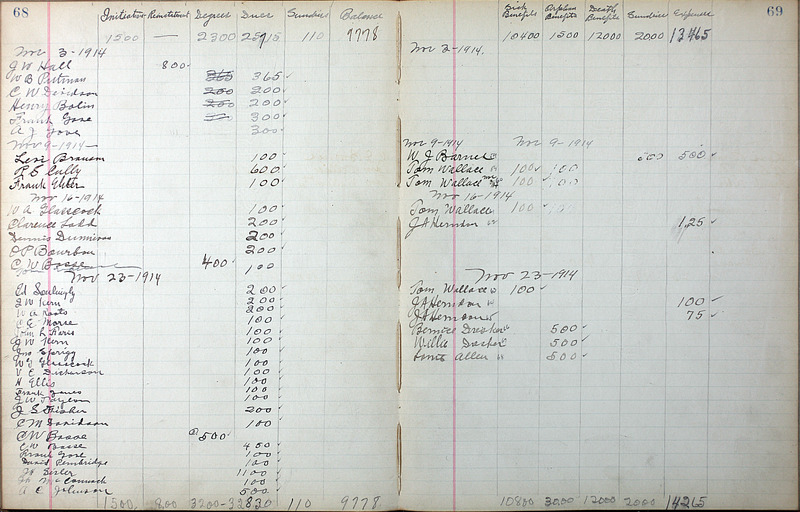 68
Initiation Reinstatement Degree Dues Sundries Balance
1500 — 2300 110 9778
Nov 3-1914
J W Hall 800
W B Pittman 365 365
C W Davidson 200 200
Henry Bolin 200 200
Frank Gose 300
A J Gose 300
Nov 9-1914
Levi Branson 100
P S Cully 600
Frank 100
Nov 16-1914
W A Glasscock 100
Clarence Ladd 200
Dennis 200
C P Bourbon 200
C W Basse 400 100
Nov 23-1914
Ed 200
J W Kern 200
W A Roots 200
C E Morse 100
John L Paris 100
J W Kern 100
Jno Sprigg 100
W A Glasscock 100
V E Dickerson 100
N Ellis 100
Frank Jones 100
J W 100
J S Fisher 200
C M Davidson 100
C W Basse 500
C W Basse 450
Frank Gose 100
David Pembridge 100
J A Sesler 1100
J A McCormack 100
A E Johnson 500
1500 800 3200 - 32830 110 9778
69
Sick Benefits Orphan Benefits Death Benefits Sundries Expense
10400 1500 12000 2000 13465
Nov 3-1914.
Nov 9-1914 Nov 9-1914
W J Barnes 500
Tom Wallace 100
Tom Wallace 100
Nov 16-1914
Tom Wallace 100
J A Herndon 125
Nov 23-1914
Tom Wallace 100
J A Herndon 100
J A Herndon 75
Bernice 500
Willie 500
Allen 500
10800 3000 12000 2000 14265